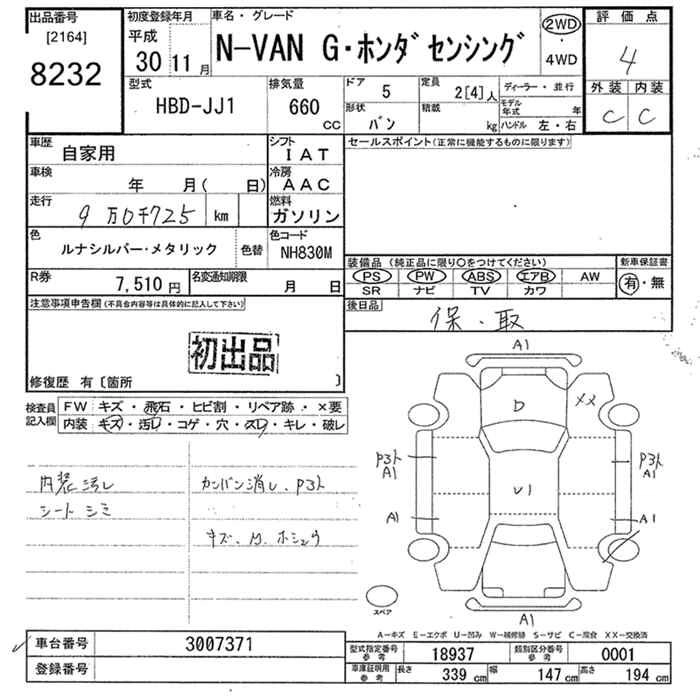 出品番号
[2164]
8232
初度登録年月
平成
30 11 月
車名・グレード
N-VAN G・ホンダセンシング
2WD
・
4WD
評価点
4
外装 内装
C C
型式
HBD-JJ1
排気量
660
CC
ドア
5
定員
2[4]人
形状
バン
積載
kg
ディーラー・並行
モデル年式 年
ハンドル 左・右
車歴
自家用
シフト
IAT
車検
年 月( 日)
冷房
AAC
走行
9万0千725 km
燃料
ガソリン
色
ルナシルバー・メタリック
色替
色コード
NH830M
R券
7,510 円
名変通知期限
月 日
セールスポイント(正常に機能するものに限ります)
装備品 (純正品に限り○をつけてください)
PS PW ABS エアB AW
SR ナビ TV カワ
新車保証書
有・無
後日品
保・取
注意事項申告欄(不具合内容等は具体的に記入して下さい)
初出品
修復歴 有〔箇所 〕
検査員
記入欄
FW キズ・飛石・ヒビ割・リペア跡・×要
内装 キズ・汚レ・コゲ・穴・スレ・キレ・破レ
内装汚レ
シートシミ
カンバン消し、P3ト
A1
D
XX
P3ト
A1
P3ト
A1
U1
A1
A1
スペア
A1
A-キズ E-エクボ U-凹み W-補修跡 S-サビ C-腐食 XX-交換済
車台番号 3007371
登録番号
型式指定番号
参考
18937
類別区分番号
参考
0001
車庫証明用
参考
長さ 339 cm 幅 147 cm 高さ 194 cm